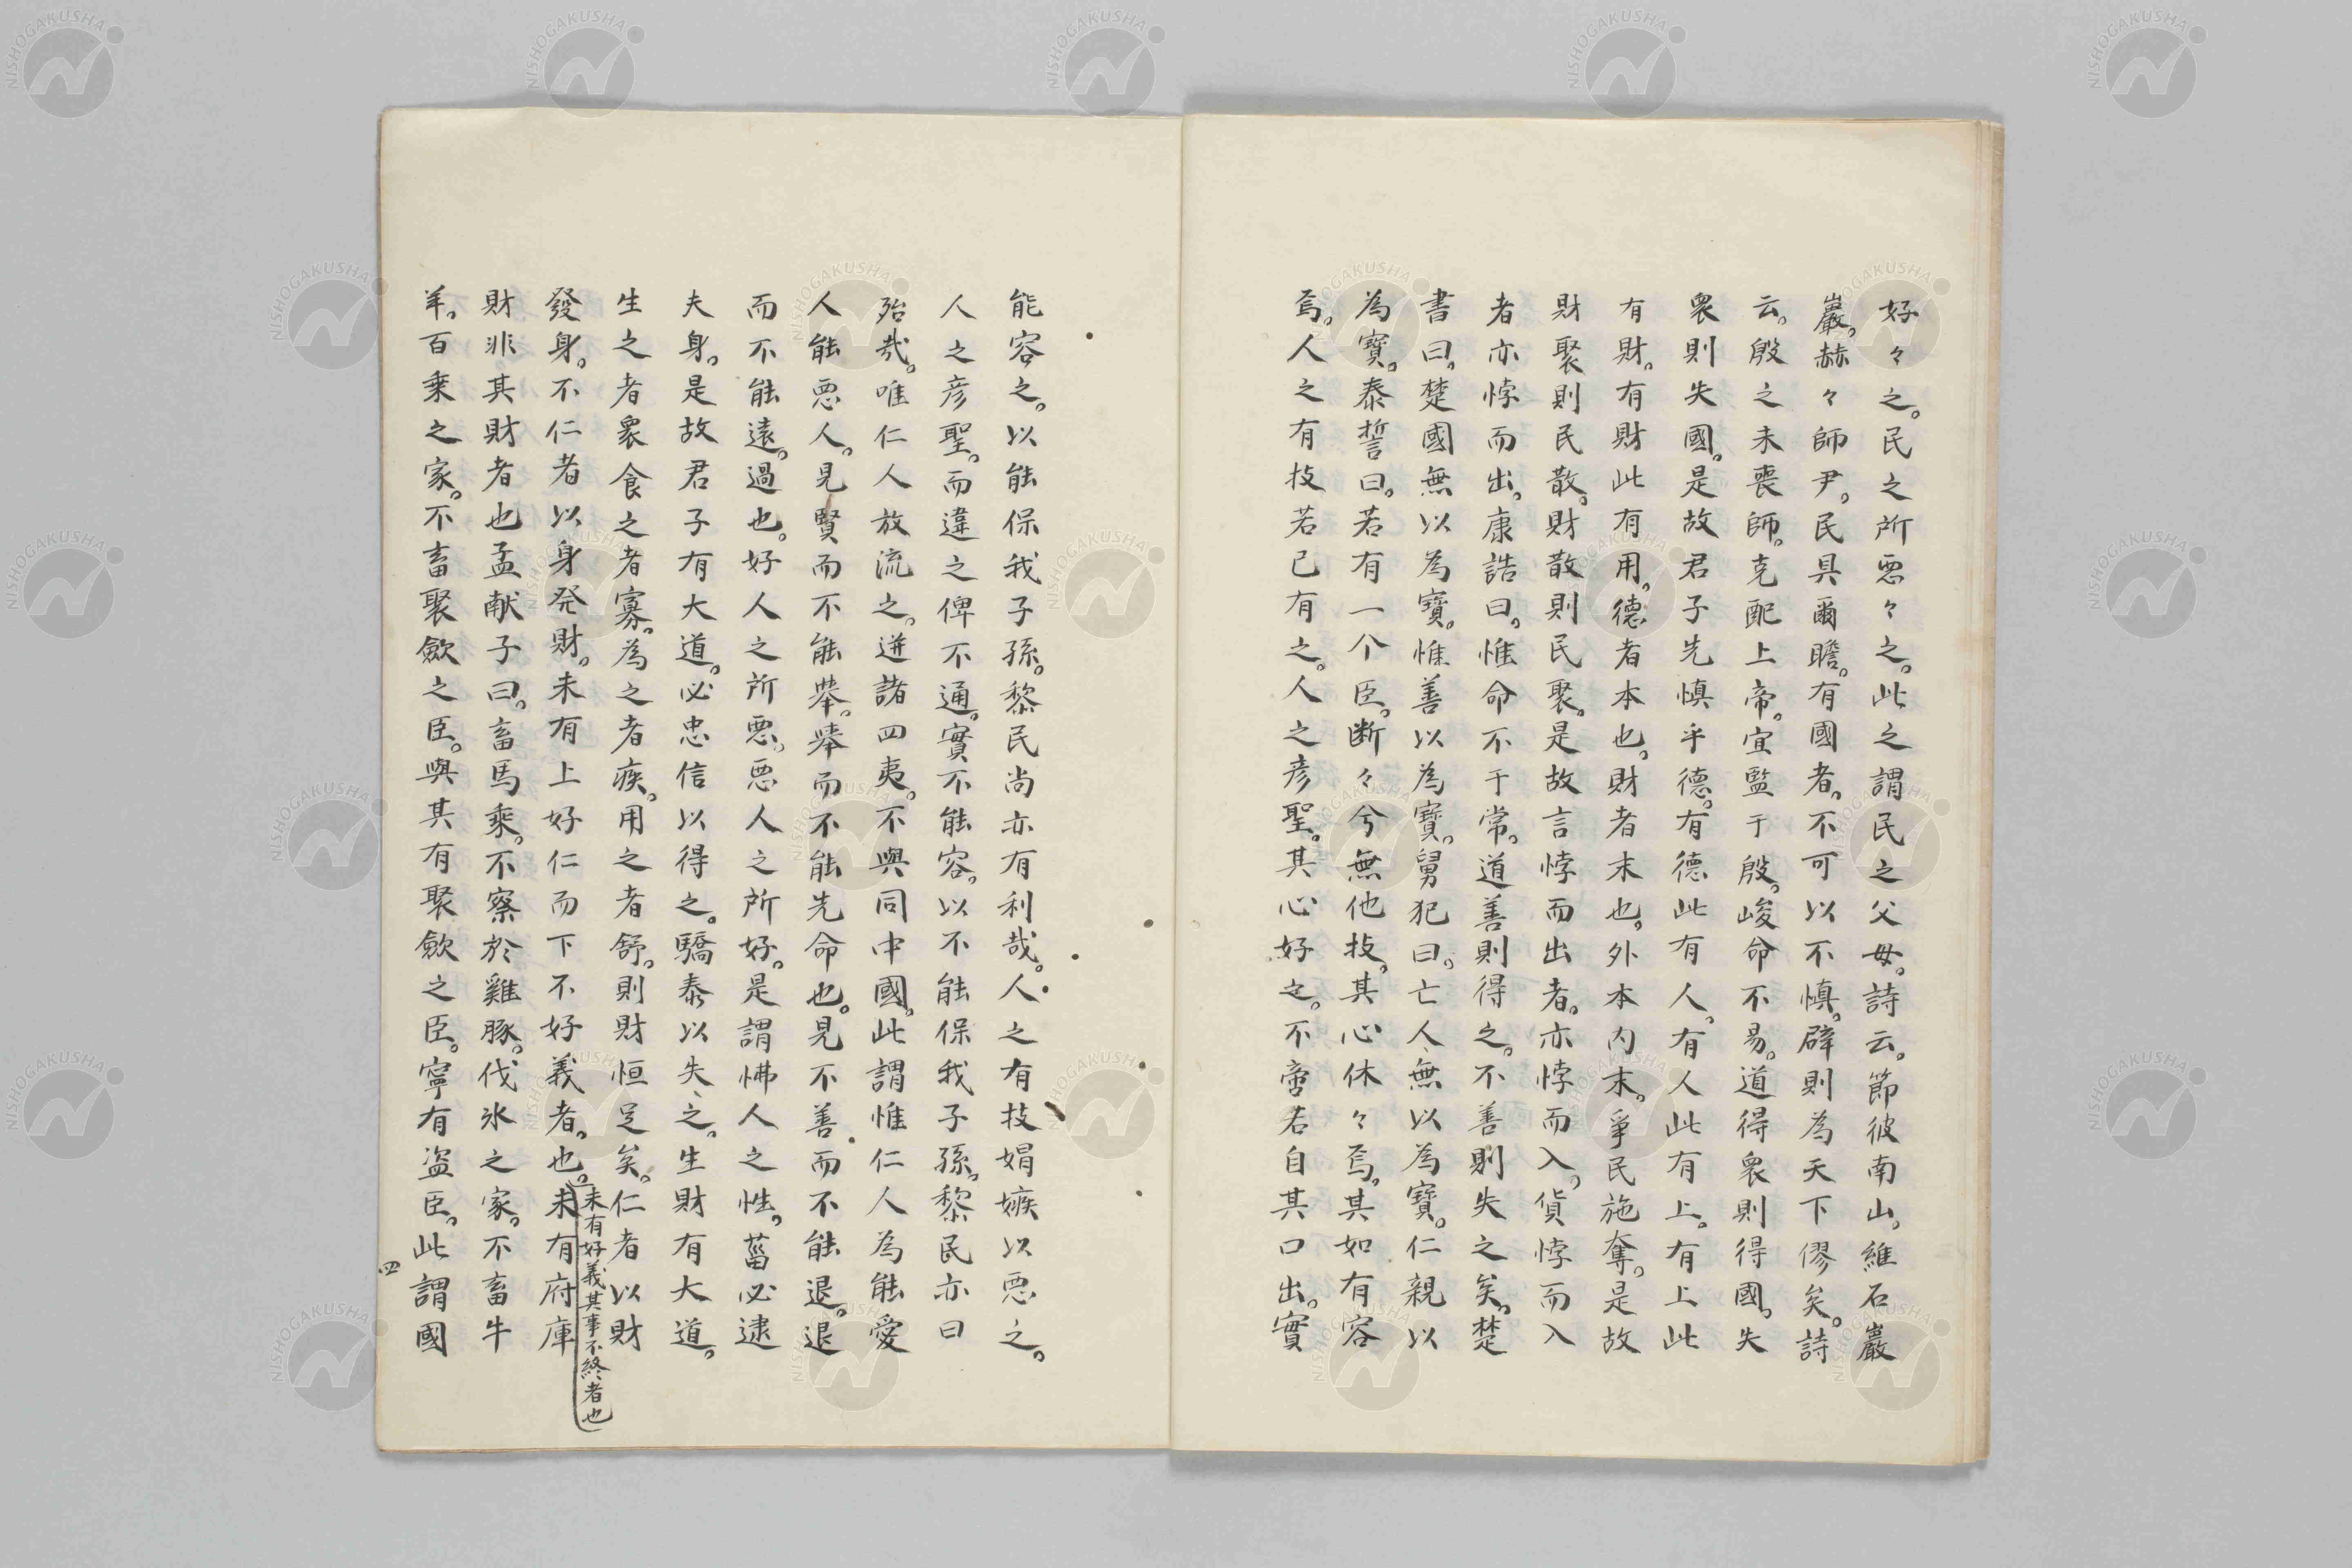 好々之。民之所悪々之。此之謂民之父母。詩云。節彼南山。維石巖
巖。赫々師尹。民具爾瞻。有國者。不可以不慎。辟則為天下僇矣。詩
云。殷之未喪師。克配上帝。宜監于殷。峻命不易。道得衆則得國。失
衆則失國。是故君子先慎乎德。有德此有人。有人此有上。有上此
有財。有財此有用。德者本也。財者末也。外本内末。爭民施奪。是故
財聚則民散。財散則民聚。是故言悖而出者。亦悖而入。貨悖而入
者亦悖而出。康誥曰。惟命不于常。道善則得之。不善則失之矣。楚
書曰。楚國無以為寶。惟善以為寶。舅犯曰。亡人無以為寶。仁親以
為寶。泰誓曰。若有一个臣。断々兮無他技。其心休々焉。其如有容
焉。人之有技若已有之。人之彦聖。其心好之。不啻若自其口出。實
能容之。以能保我子孫。黎民尚亦有利哉。人之有技媢嫉以悪之。
人之彦聖。而違之俾不通。實不能容。以不能保我子孫。黎民亦曰
殆哉。唯仁人放流之。迸諸四夷。不與同中國。此謂惟仁人為能愛
人能悪人。見賢而不能舉。舉而不能先命也。見不善而不能退。退
而不能遠。過也。好人之所悪。悪人之所好。是謂怫人之性。菑必逮
夫身。是故君子有大道。必忠信以得之。驕泰以失之。生財有大道。
生之者衆食之者寡。為之者疾。用之者舒。則財恒足矣。仁者以財
發身。不仁者以身発財。未有上好仁而下不好義者。也。未有府庫
未有好義其事不終者也
財非其財者也孟献子曰。畜馬乘。不察於雞豚。伐氷之家。不畜牛
羊。百乗之家。不畜聚斂之臣。與其有聚斂之臣。寧有盗臣。此謂國
四
NISHOGAKUSHA